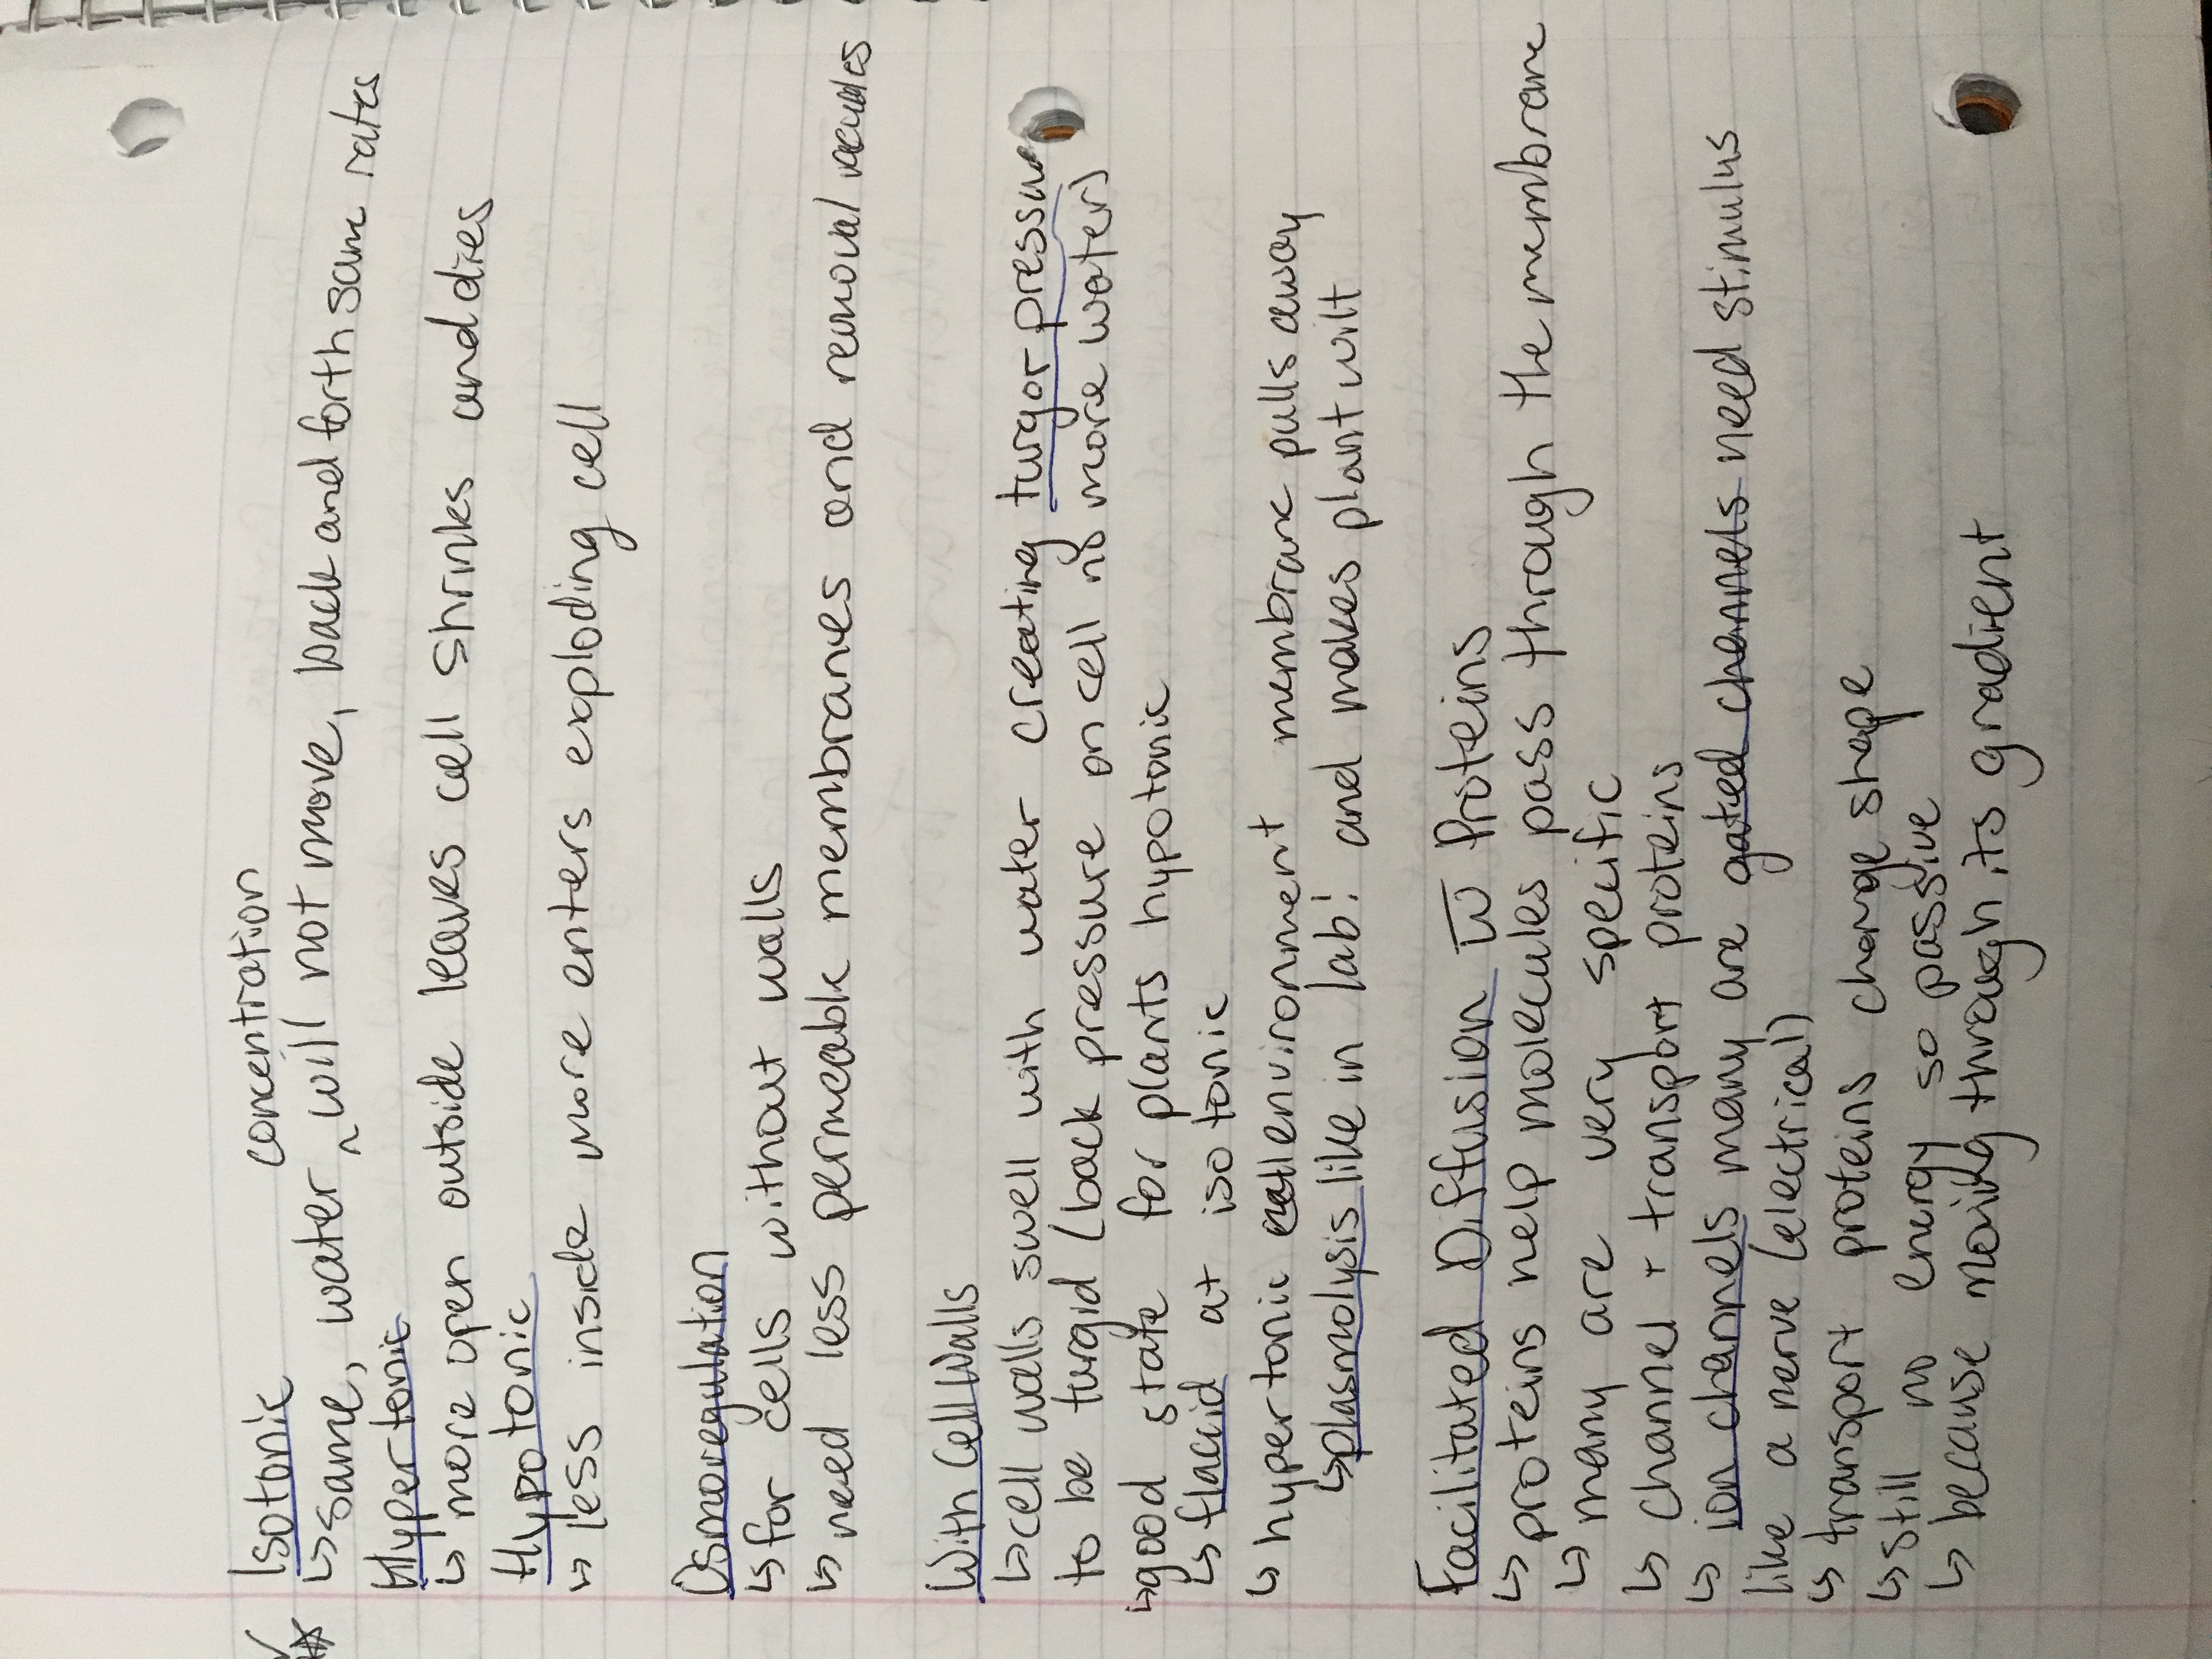 Isotonic
↳ same, water ^concentration will not move, back and forth same rates
Hypertonic
↳ more open outside leaves cell shrinks and dies
Hypotonic
↳ less inside more enters exploding cell
Osmoregulation
↳ for cells without walls
↳ need less permeable membranes and removal vacuoles
With Cell Walls
↳ cell walls swell with water creating turgor pressure
to be turgid (back pressure on cell no more water)
↳ good state for plants hypotonic
↳ flacid at isotonic
↳ hypertonic environment membrane pulls away
↳ plasmolysis like in lab! and makes plant wilt
Facilitated Diffusion w Proteins
↳ proteins help molecules pass through the membrane
↳ many are very specific
↳ channel + transport proteins
↳ ion channels many are gated channels need stimulus
like a nerve (electrical)
↳ transport proteins change shape
↳ still no energy so passive
↳ because moving through its gradient